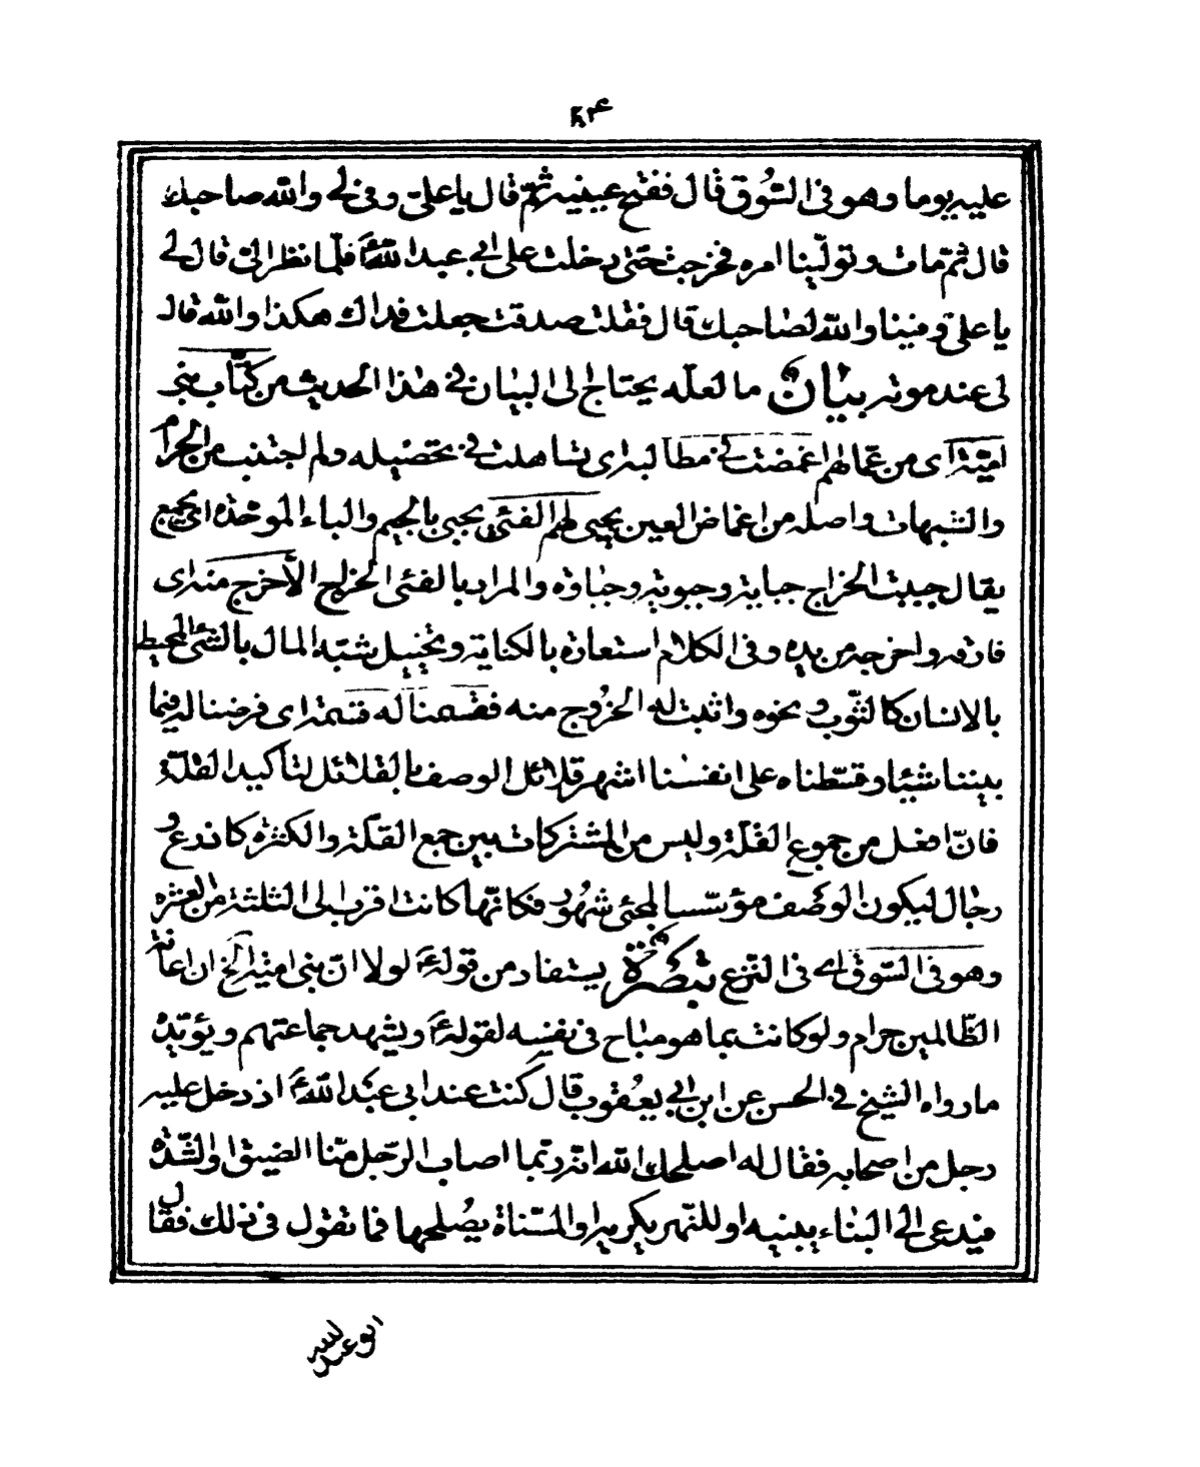 عليه يوما وهو فى السُّوق قال ففتح عينيه ثمّ قال يا علىّ وفى لى والله صاحبك
قال ثمّ مات وتولّينا امره فخرجت حتى دخلت على ابى عبد اللهؑ فلمّا نظر الىّ قال لى
يا علىّ وفينا والله لصاحبك قال فقلت صدقت جعلت فداك هكذا والله قال
لى عند موته بيان ما لعلّه يحتاج الى البيان فى هذا الحديث من كتّاب بنى
اميّة اى من عمّالهم اغمضت فى مطالبه اى تساهلت فى تحصيله ولم اجتنب من الحرام
والشبهات واصله من اغماض العين يجبى لهم الفئى يجبى بالجيم والباء الموحّدة اى يجمع
يقال جبيت الخراج جباية وجبوته وجباوة والمراد بالفئى الخراج الّا خرج منه اى
فارقه واخرجه من يده وفى الكلام استعارة بالكناية وتخييل شبّه المال بالشئى المحيط
بالانسان كالثّوب ونحوه واثبت له الخروج منه فقسمنا له قسمة اى فرضنا له فيما
بيننا شيئا وقسّطناه على انفسنا اشهر قلائل الوصف بالقلائل لتأكيد القلّة
فانّ افعل من جموع القلّة وليس من المشتركات بين جمع القلّة والكثرة كاذرع و
رجال ليكون الوصف مؤسّسا لمجئى شهُور فكانّها كانت اقرب الى الثلثة من العشرة
وهو فى السّوق اى فى النّزع تبصرة يستفاد من قولهؑ لولا انّ بنى اميّة الخ ان اعانة
الظّالمين حرام ولو كانت بما هو مباح فى نفسه لقولهؑ ويشهد جماعتهم ويؤيّده
ما رواه الشيخ فى الحسن عن ابن ابى يعفُوب قال كنت عند ابى عبد اللهؑ اذ دخل عليه
رجل من اصحابه فقال له اصلحك الله انّه ربّما اصاب الرّجل منّا الضيق او الشّدّة
فيدعى الى البناء يبنيه او للنّهر يكريه او المسنّاة يصُلحها فما تقول فى ذلك فقال
ابو عبد الله